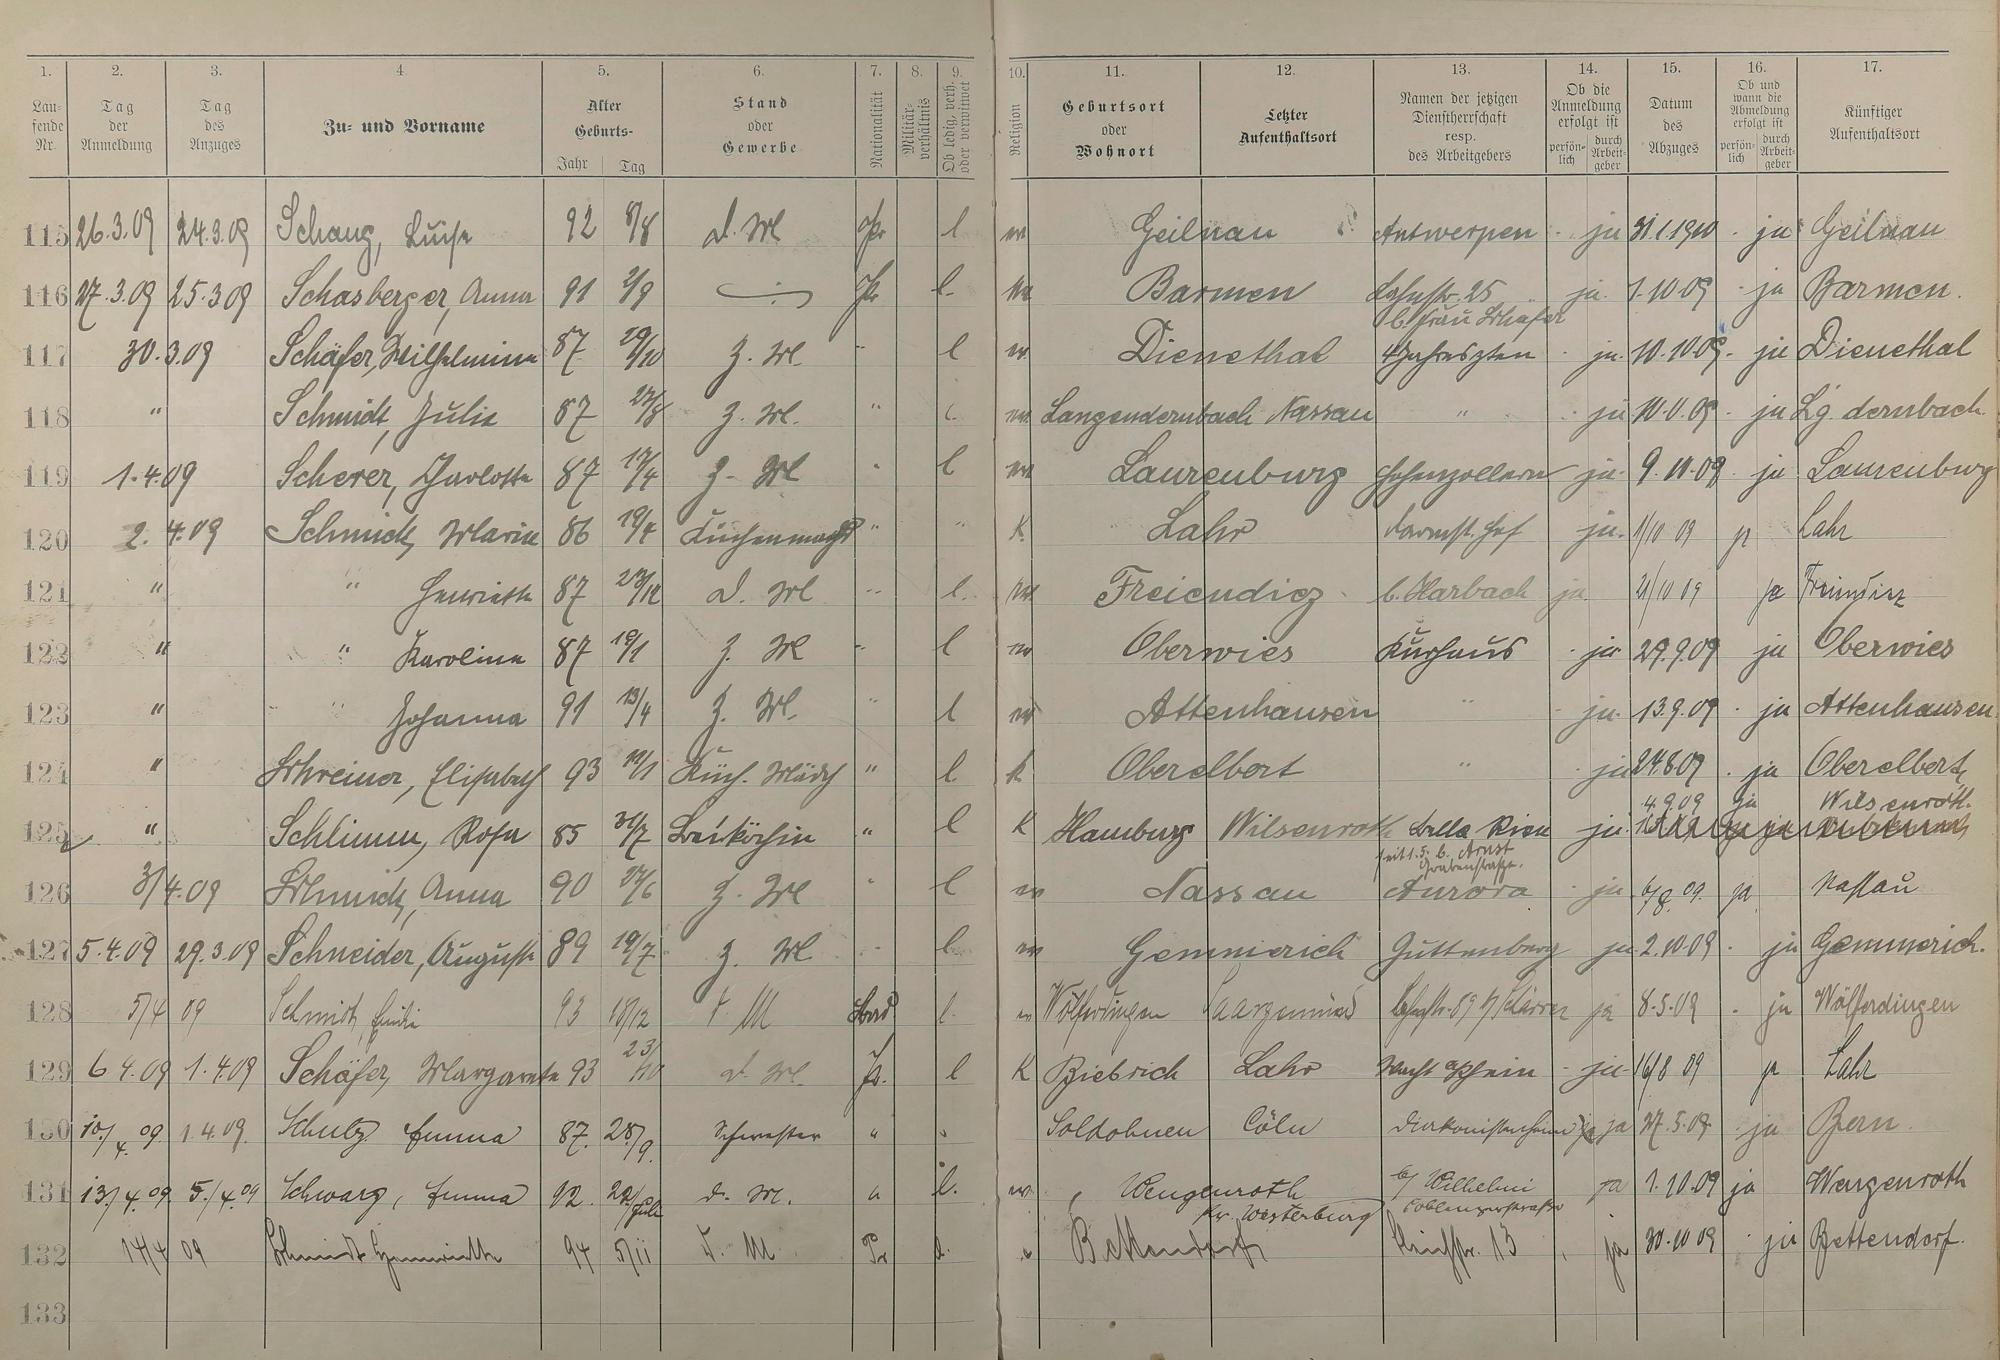 1. 2. 3. 4 5. 6. 7. 8. 9. 10. 11. 12. 13. 14. 15. 16. 17.
Lau- fende Nr. Tag der Anmeldung Tag des Anzuges Zu- und Vorname Alter Geburts- Jahr Tag Stand oder Gewerbe Nationalität Militär- verhältnis Ob ledig, verh. oder verwitwet Religion Geburtsort oder Wohnort Letzter Aufenthaltsort Namen der jetzigen Dienstherrschaft resp. des Arbeitgebers Ob die Anmeldung erfolgt ist persön- lich durch Arbeit- geber Datum des Abzuges Ob und wann die Abmeldung erfolgt ist persön- lich durch Arbeit- geber Künftiger Aufenthaltsort
115 26.3.09 24.3.09 Schaug, Luise 92 8/8 d. Ml Pr l Geilnau Antwerpen ja 31.1.1910 ja Geilnau
116 27.3.09 25.3.09 Schasberger, Anna 91 2/9 Pr l. Barmen Lahnstr. 25 ja. 1.10.09 ja Barmen.
b. Frau Schäfer
117 30.3.09 Schäfer, Wilhelmine 87 29/10 Z. Ml. l Dienethal 4 Jahreszten ja. 10.10.09. ja Dienethal
118 " Schmidt, Julie 87 27/8 Z. Ml. " Langendernbach Nassau " ja 10.10.09. ja Lg. dernbach.
119 1.4.09 Scherer, Charlotte 87 17/4 Z. Ml l Laurenburg Hohenzollern ja. 9.10.09 ja Laurenburg
120 2.4.09 Schmidt, Marie 86 19/4 Küchenmagd " " K. Lahr Darmst. Hof ja. 1/10 09 ja Lahr
121 " " Henriette 87 23/12 d. Ml " l. Freiendiez b. Harbach ja. 21/10 09 ja Freiendiez
122 " " Karolina 87 19/1 Z. Ml " l Oberwies Kurhaus ja 29.9.09 ja Oberwies
123 " " Johanna 91 13/4 Z. Ml. " l Attenhausen " ja. 13.9.09 ja Attenhausen
124 " Schreiner, Elisabeth 93 19/1 Küch. Mädch " l K Oberelbert " ja 24.8.09 ja Oberelbert
4.9.09 ja Wilsenroth.
125 " Schlimm, Rosa 85 31/7 Beiköchin " l K Hamburg Wilsenroth Bella Riva ja.
seit 1.5. b. Arnst
Grabenstraße.
126 3/4.09 Schmidt, Anna 90 27/6 Z. Ml l Nassau Aurora ja 6/8. 09. ja Nassau
127 5.4.09 29.3.09 Schneider, Auguste 89 19/7 Z. Ml l. Gemmerich Guttenberg ja 2.10.09 ja Gemmerich.
128 5/4 09 Schmidt, Emilie 93 18/12 d. M l. Wölferdingen Saargemünd Lahnstr. 89 ja 8.5.09 ja Wölferdingen
129 6 4.09 1.4.09 Schäfer, Margarete 93 23/10 d. Ml. Pr. l K Biebrich Lahr Wacht a/Rhein ja 16/8 09 ja Lahr
130 10./4. 09 1.4.09. Schulz Emma 87. 28./9. Schwester " " Soldahnen Cöln Diakonissenheim ja 27.5.09 ja Bern.
131 13./4.09 5./4.09 Schwarz, Emma 92. 22./Juli d. M. " l. Wengenroth b/ Wilhelmi ja 1.10.09 ja Wengenroth
Kr. Westerburg Coblenzerstraße
132 14/4 09 Schmidt Henriette 94 5/11 d. M Pr l. Bettendorf 13 ja 30.10 09 ja Bettendorf.
133